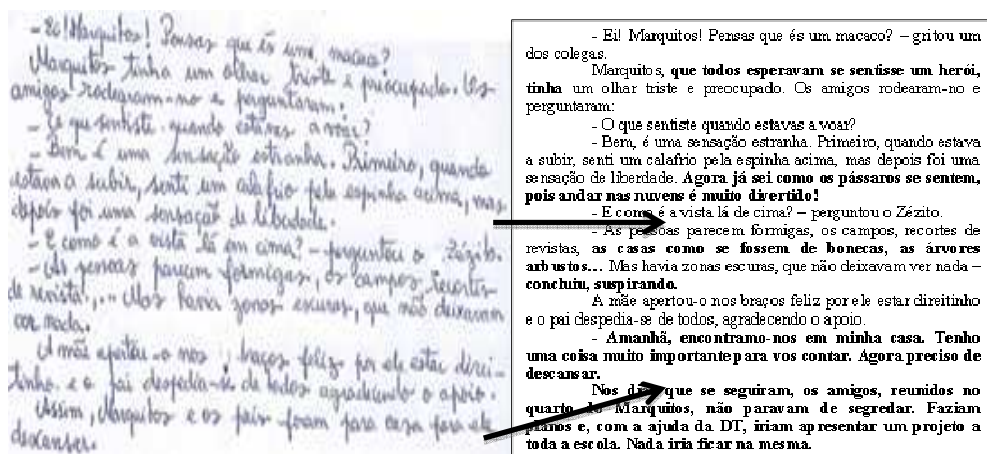 - Ei! Marquitos! Pensas que és um macaco?
Marquitos tinha um olhar triste e preocupado. Os
amigos rodearam-no e perguntaram:
- O que sentiste quando estavas a voar?
- Bem é uma sensação estranha. Primeiro, quando
estava a subir, senti um calafrio pela espinha acima, mas
depois foi uma sensação de liberdade.
- E como é a vista lá em cima? - perguntou o Zézito.
- As pessoas parecem formigas, os campos, recortes
de revista,... Mas havia zonas escuras, que não deixavam
ver nada.
A mãe apertou-o nos braços feliz por ele estar direi-
tinho e o pai despedia-se de todos agradecendo o apoio.
Assim, Marquitos e os pais foram para casa para ele
descansar.
- Ei! Marquitos! Pensas que és um macaco? – gritou um
dos colegas.
Marquitos, que todos esperavam se sentisse um herói,
tinha um olhar triste e preocupado. Os amigos rodearam-no e
perguntaram:
- O que sentiste quando estavas a voar?
- Bem, é uma sensação estranha. Primeiro, quando estava
a subir, senti um calafrio pela espinha acima, mas depois foi uma
sensação de liberdade. Agora já sei como os pássaros se sentem,
pois andar nas nuvens é muito divertido!
- E como é a vista lá de cima? – perguntou o Zézito.
- As pessoas parecem formigas, os campos, recortes de
revistas, as casas como se fossem de bonecas, as árvores
arbustos... Mas havia zonas escuras, que não deixavam ver nada –
concluiu, suspirando.
A mãe apertou-o nos braços feliz por ele estar direitinho
e o pai despedia-se de todos, agradecendo o apoio.
- Amanhã, encontramo-nos em minha casa. Tenho
uma coisa muito importante para vos contar. Agora preciso de
descansar.
Nos dias que se seguiram, os amigos, reunidos no
quarto do Marquitos, não paravam de segredar. Faziam
planos e, com a ajuda da DT, iriam apresentar um projeto a
toda a escola. Nada iria ficar na mesma.